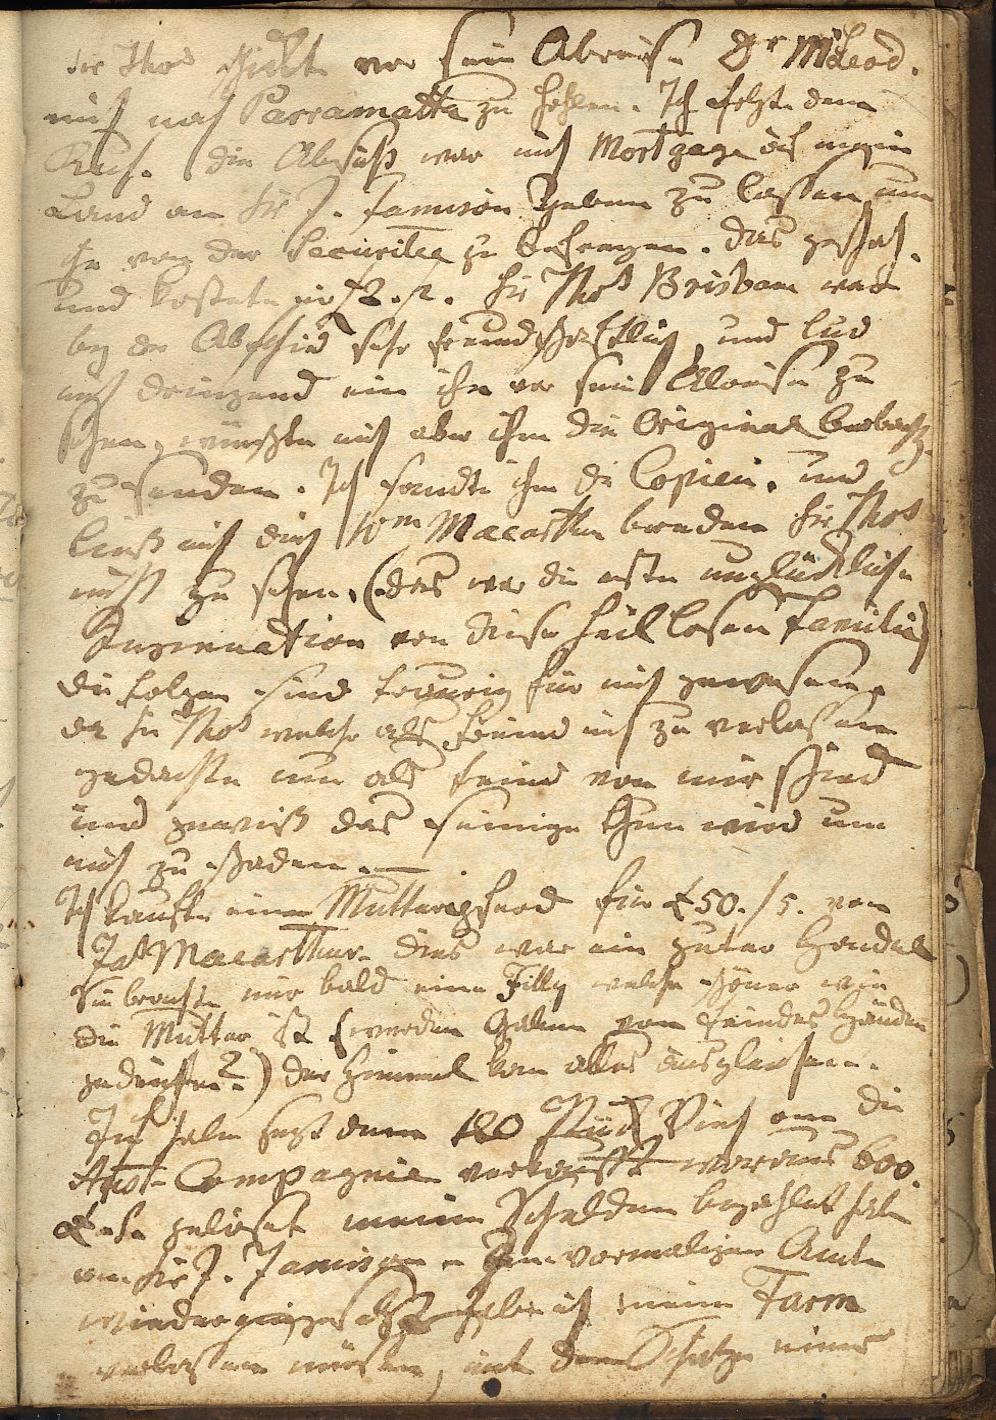 Sir Thos schickte vor sein Abreise Dr McLeod.
mich nach Parramatta zu hohlen. Ich folgte dem
Ruf. die Absicht war mich Mortgage auf mein
Land an Sir J. Jamison geben zu lassen um
ihn von der Securitee zu befreyen. das geschah.
und kostete mir £2.12. Sir Thos Brisbane war
bey der Abschied sehr freundschaftlich, und lud
mich dringend ein ihn vor sein Abreise zu
sehen, wünschte mich aber ihm die Original beobacht
zu senden. Ich sandte ihm die Copien. und
liess mich durch Wm Macarthur bereden Sir Thos
nicht zu sehen. (das war die erste unglückliche
Insinuation von dieser heillosen Familie)
die folgen sind traurig für mich gewesen.
da Sir Thos welcher als freund mich zu verlassen
gedachte nun als feind von mir schied
und gewiss das seinige thun wird um
mich zu schaden.—
Ich kaufte einen Mutterpferd für £50./5. von
Jas Macarthur. dies war ein guter Handel
Sie brachte mir bald eine Filly welche schöner wie
die Mutter ist (werden gaben von feindes händen
gedeihen?) der Himmel kan alles ausgleichen.
Ich habe fast denn 120 Stück Vieh an die
Aust- Compagnie verkaufft woraus 600.
£ gelöset meine Schulden bezahlet habe
an Sir J. Jamison vormaligen Amte
wieder habe ich meine Farm
verlassen müssen, mit dem Schatze meines